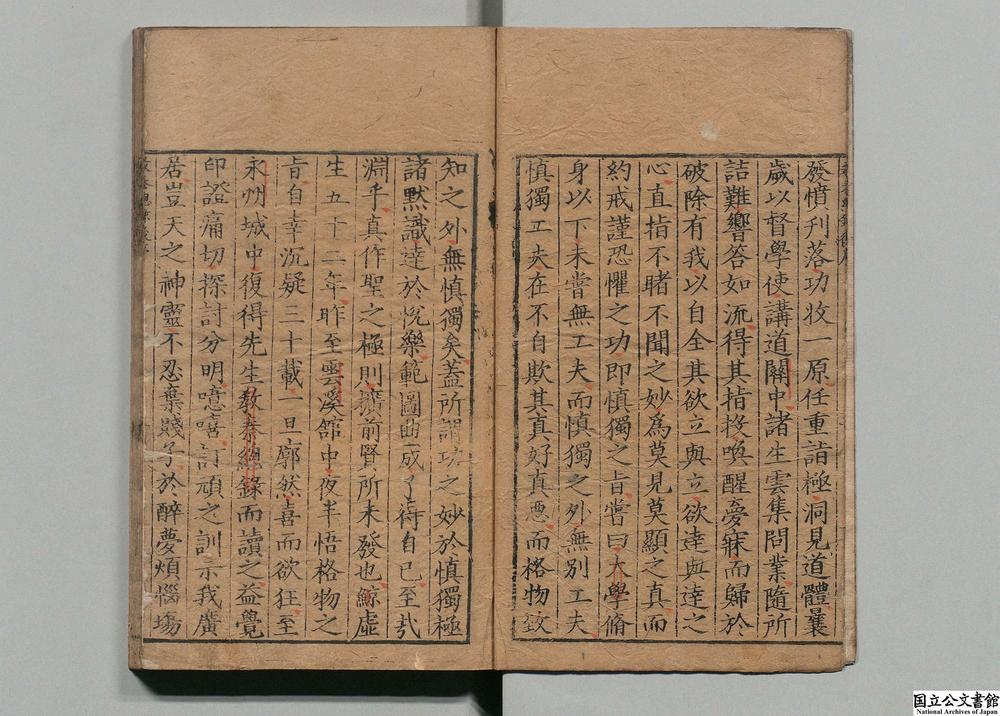 發憤刋落功收一原任重詣極洞見道體曩
歲以督學使講道關中諸生雲集問業隨所
詰難響答如流得其指授喚醒憂寐而歸於
破除有我以自全其欲立與立欲達與達之
心直指不睹不聞之妙為莫見莫顯之真而
約戒謹恐懼之功即慎獨之旨嘗曰大學脩
身以下未嘗無工夫而慎獨之外無別工夫
慎獨工夫在不自欺其真好真惡而格物致
知之外無慎獨矣蓋所謂功之妙於慎獨極
諸默識達於悅樂範圍曲成了待自已至哉
淵乎真作聖之極則擴前賢所未發也鯨虛
生五十二年昨至雲溪舘中夜半悟格物之
旨自幸沉疑三十載一旦廓然喜而欲狂至
永州城中復得先生教秦緫錄而讀之益覺
印證痛切探討分明噫嘻訂頑之訓示我廣
居豈天之神靈不忍棄賤子於醉夢煩惱塲
国立公文書館
National Archives of Japan